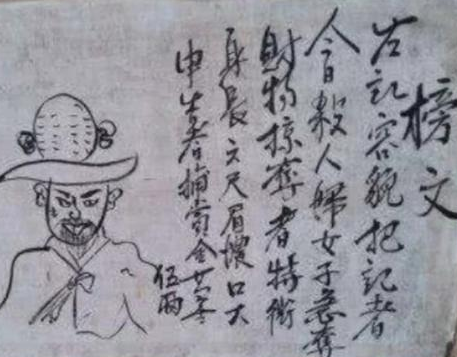 榜文
右記容貌把記者
今日殺人婦女子急奪
財物掠奪者特徵
身長六尺眉濃口大
申告者捕賞金
伍兩